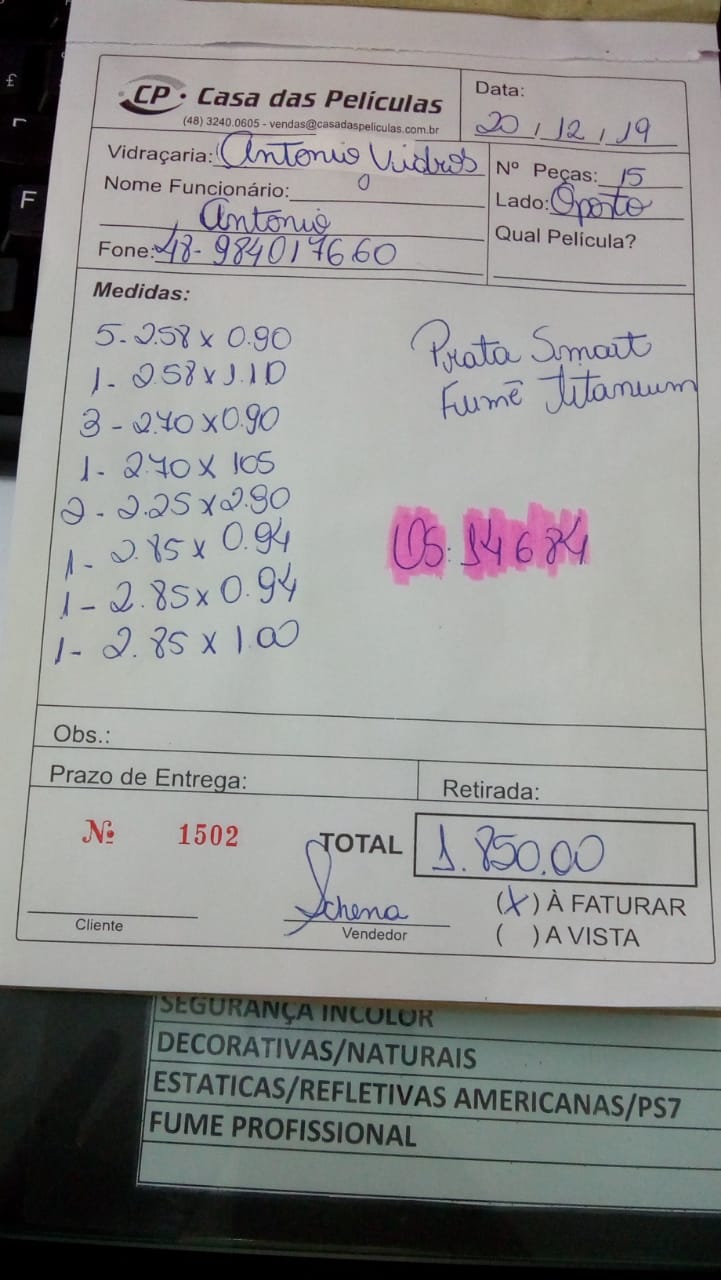 CP. Casa das Películas
(48) 3240.0605 - vendas@casadaspeliculas.com.br
Data:
20 / 12 / 19
Vidraçaria: Antonio Vidros
Nome Funcionário:
Antonio
Fone: 48-984017660
Nº Peças: 15
Lado: Oposto
Qual Película?
Medidas:
5-2.58 x 0.90
1- 258 x 1.10
3-2.70 x 0.90
1- 2.70 x 105
2-2.25 x 2.90
1- 2.85 x 0.94
1- 2.85 x 0.94
1- 2.85 x 1.00
Prata Smart
Fumê Titanium
OS: 14684
Obs.:
Prazo de Entrega:
Retirada:
Nº 1502
TOTAL 1.850.00
Schena
Cliente
Vendedor
(X) À FATURAR
( ) A VISTA
SEGURANÇA INCOLOR
DECORATIVAS/NATURAIS
ESTATICAS/REFLETIVAS AMERICANAS/PS7
FUME PROFISSIONAL
£
F